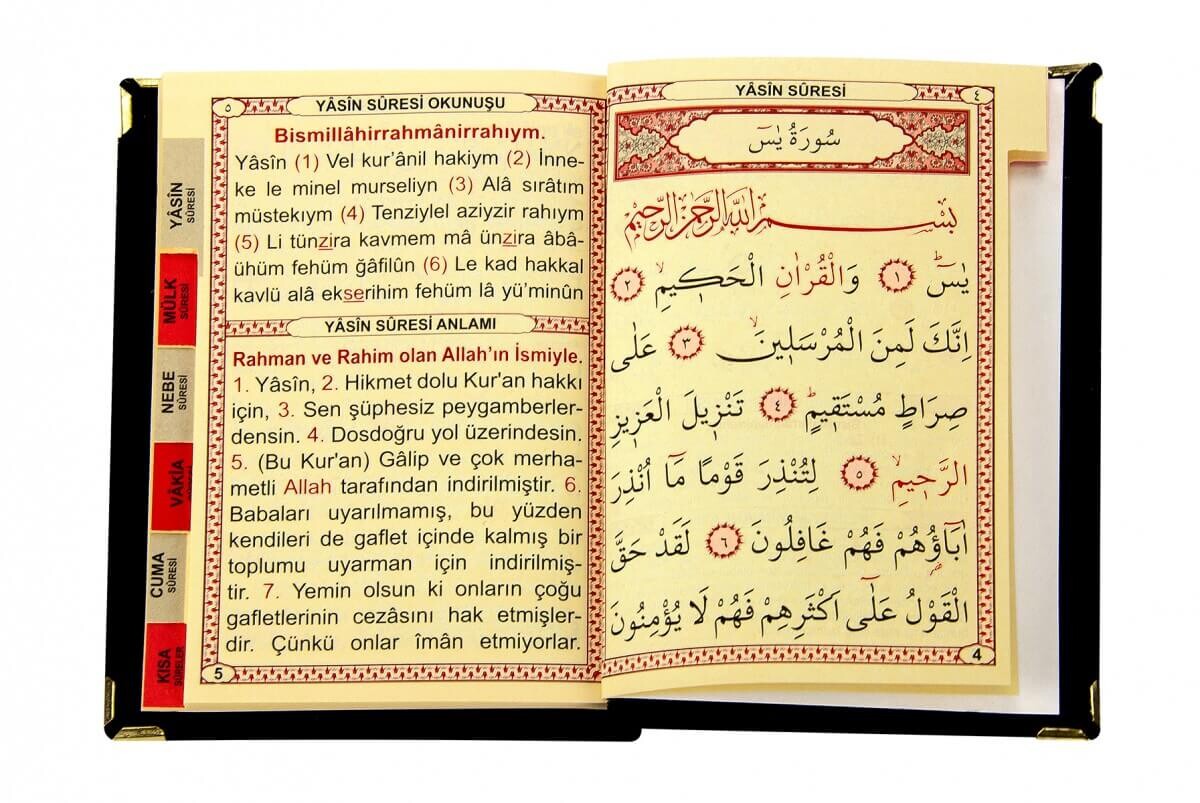 YÂSÎN SÛRESİ
٤
سُورَةُ يٰسٓ
بِسْمِ اللّٰهِ الرَّحْمٰنِ الرَّحِيمِ
يٰسٓ ۚ ﴿١﴾ وَالْقُرْاٰنِ الْحَكٖيمِۙ ﴿٢﴾
اِنَّكَ لَمِنَ الْمُرْسَلٖينَۙ ﴿٣﴾ عَلٰى
صِرَاطٍ مُسْتَقٖيمٍۜ ﴿٤﴾ تَنْزٖيلَ الْعَزٖيزِ
الرَّحٖيمِۙ ﴿٥﴾ لِتُنْذِرَ قَوْمًا مَٓا اُنْذِرَ
اٰبَٓاؤُ۬هُمْ فَهُمْ غَافِلُونَ ﴿٦﴾ لَقَدْ حَقَّ
الْقَوْلُ عَلٰٓى اَكْثَرِهِمْ فَهُمْ لَا يُؤْمِنُونَ
4
٥
YÂSÎN SÛRESİ OKUNUŞU
Bismillâhirrahmânirrahıym.
Yâsîn (1) Vel kur’ânil hakiym (2) İnne-
ke le minel murseliyn (3) Alâ sırâtım
müstekıym (4) Tenziylel aziyzir rahıym
(5) Li tünzira kavmem mâ ünzira âbâ-
ühüm fehüm ğafilûn (6) Le kad hakkal
kavlü alâ ekserihim fehüm lâ yü’minûn
YÂSÎN SÛRESİ ANLAMI
Rahman ve Rahim olan Allah’ın İsmiyle.
1. Yâsîn, 2. Hikmet dolu Kur'an hakkı
için, 3. Sen şüphesiz peygamberler-
densin. 4. Dosdoğru yol üzerindesin.
5. (Bu Kur'an) Gâlip ve çok merha-
metli Allah tarafından indirilmiştir. 6.
Babaları uyarılmamış, bu yüzden
kendileri de gaflet içinde kalmış bir
toplumu uyarman için indirilmiş-
tir. 7. Yemin olsun ki onların çoğu
gafletlerinin cezâsını hak etmişler-
dir. Çünkü onlar îmân etmiyorlar.
5
YÂSÎN
SÛRESİ
MÜLK
SÛRESİ
NEBE
SÛRESİ
VÂKIA
CUMA
SÛRESİ
KISA
SÛRELER